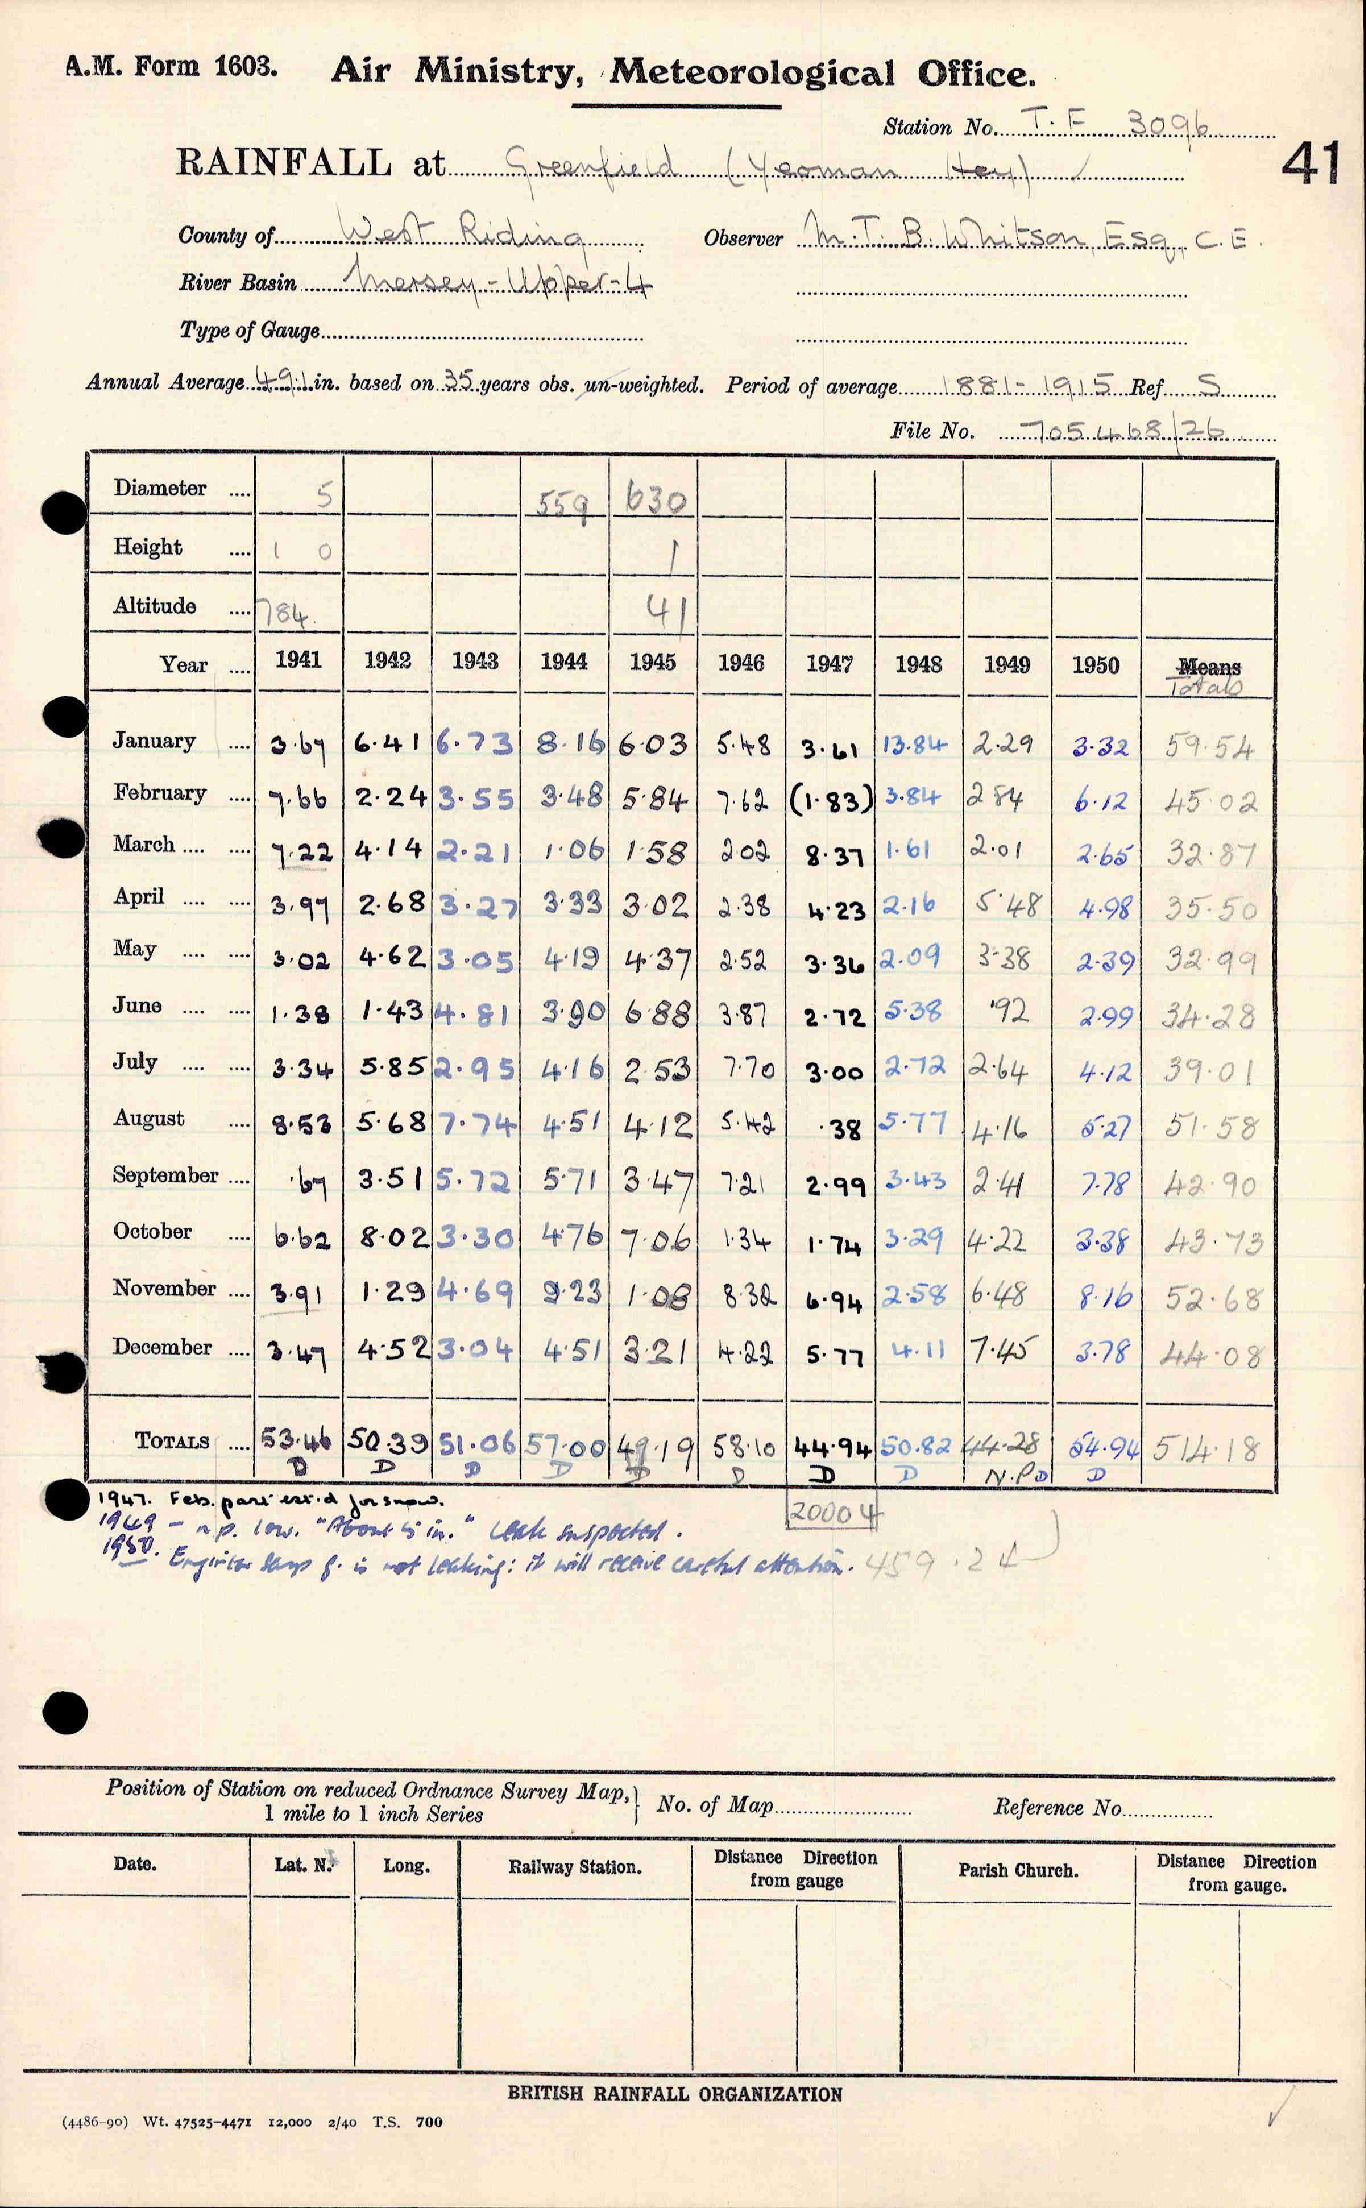 A.M. Form 1603. Air Ministry, Meteorological Office.
Station No. T.F 3096
41
RAINFALL at Greenfield (Yeoman Hey) ✓
County of West Riding Observer M.T.B. Whitson, Esq., C.E.
River Basin Mersey-Upper-4
Type of Gauge
Annual Average 49.1 in. based on 35 years obs. un-weighted. Period of average 1881-1915 Ref. S
File No. 705468/26
Diameter .... 5 559 630
Height .... 1 0 1
Altitude .... 784 41
Year .... 1941 1942 1943 1944 1945 1946 1947 1948 1949 1950 Means
Totals
January .... 3.67 6.41 6.73 8.16 6.03 5.48 3.61 13.84 2.29 3.32 59.54
February .... 7.66 2.24 3.55 3.48 5.84 7.62 (1.83) 3.84 2 84 6.12 45.02
March .... .... 7.22 4.14 2.21 1.06 1.58 2 02 8.37 1.61 2.01 2.65 32.87
April .... .... 3.97 2.68 3.27 3.33 3.02 2.38 4.23 2.16 5.48 4.98 35.50
May .... .... 3.02 4.62 3.05 4.19 4.37 2.52 3.36 2.09 3.38 2.39 32.99
June .... .... 1.38 1.43 4.81 3.90 6.88 3.87 2.72 5.38 .92 2.99 34.28
July .... .... 3.34 5.85 2.95 4.16 2.53 7.70 3.00 2.72 2.64 4.12 39.01
August .... 8.53 5.68 7.74 4.51 4.12 5.42 .38 5.77 4.16 5.27 51.58
September .... .67 3.51 5.72 5.71 3.47 7.21 2.99 3.43 2.41 7.78 42.90
October .... 6.62 8.02 3.30 4.76 7.06 1.34 1.74 3.29 4.22 3.38 43.73
November .... 3.91 1.29 4.69 9.23 1.08 8.32 6.94 2.58 6.48 8.16 52.68
December .... 3.47 4.52 3.04 4.51 3.21 4.22 5.77 4.11 7.45 3.78 44.08
TOTALS .... 53.46 50.39 51.06 57.00 49.19 58.10 44.94 50.82 44.28 54.94 514.18
D D D D D D D D N.P.D D
1947. Feb. part est.d for snow.
20004
1949 - n.p. low. "About 5 in." Leak suspected.
1950. Engineer says g. is not leaking: it will receive careful attention. 459.24
Position of Station on reduced Ordnance Survey Map,
1 mile to 1 inch Series
No. of Map Reference No.
Date. Lat. N. Long. Railway Station. Distance Direction from gauge Parish Church. Distance Direction from gauge.
BRITISH RAINFALL ORGANIZATION
(4486-90) Wt. 47525-4471 12,000 2/40 T.S. 700
✓